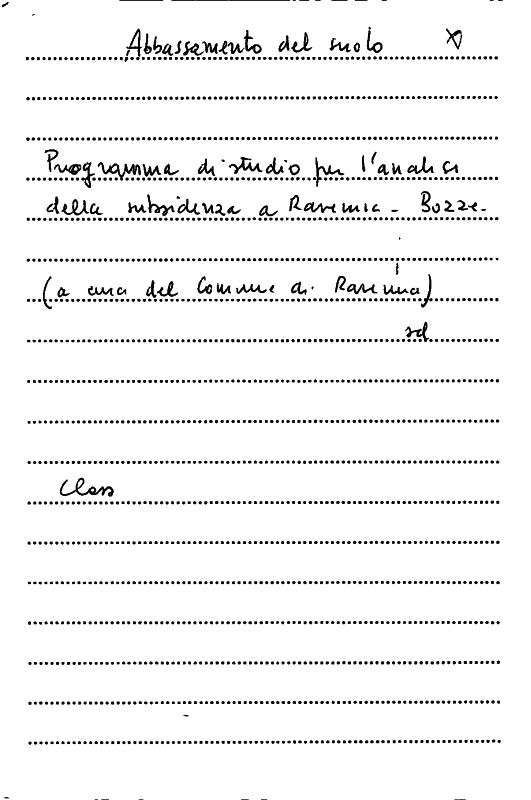 Abbassamento del suolo
Programma di studio per l'analisi
della subsidenza a Ravenna - Bozze -
(a cura del Comune di Ravenna)
sd
Class